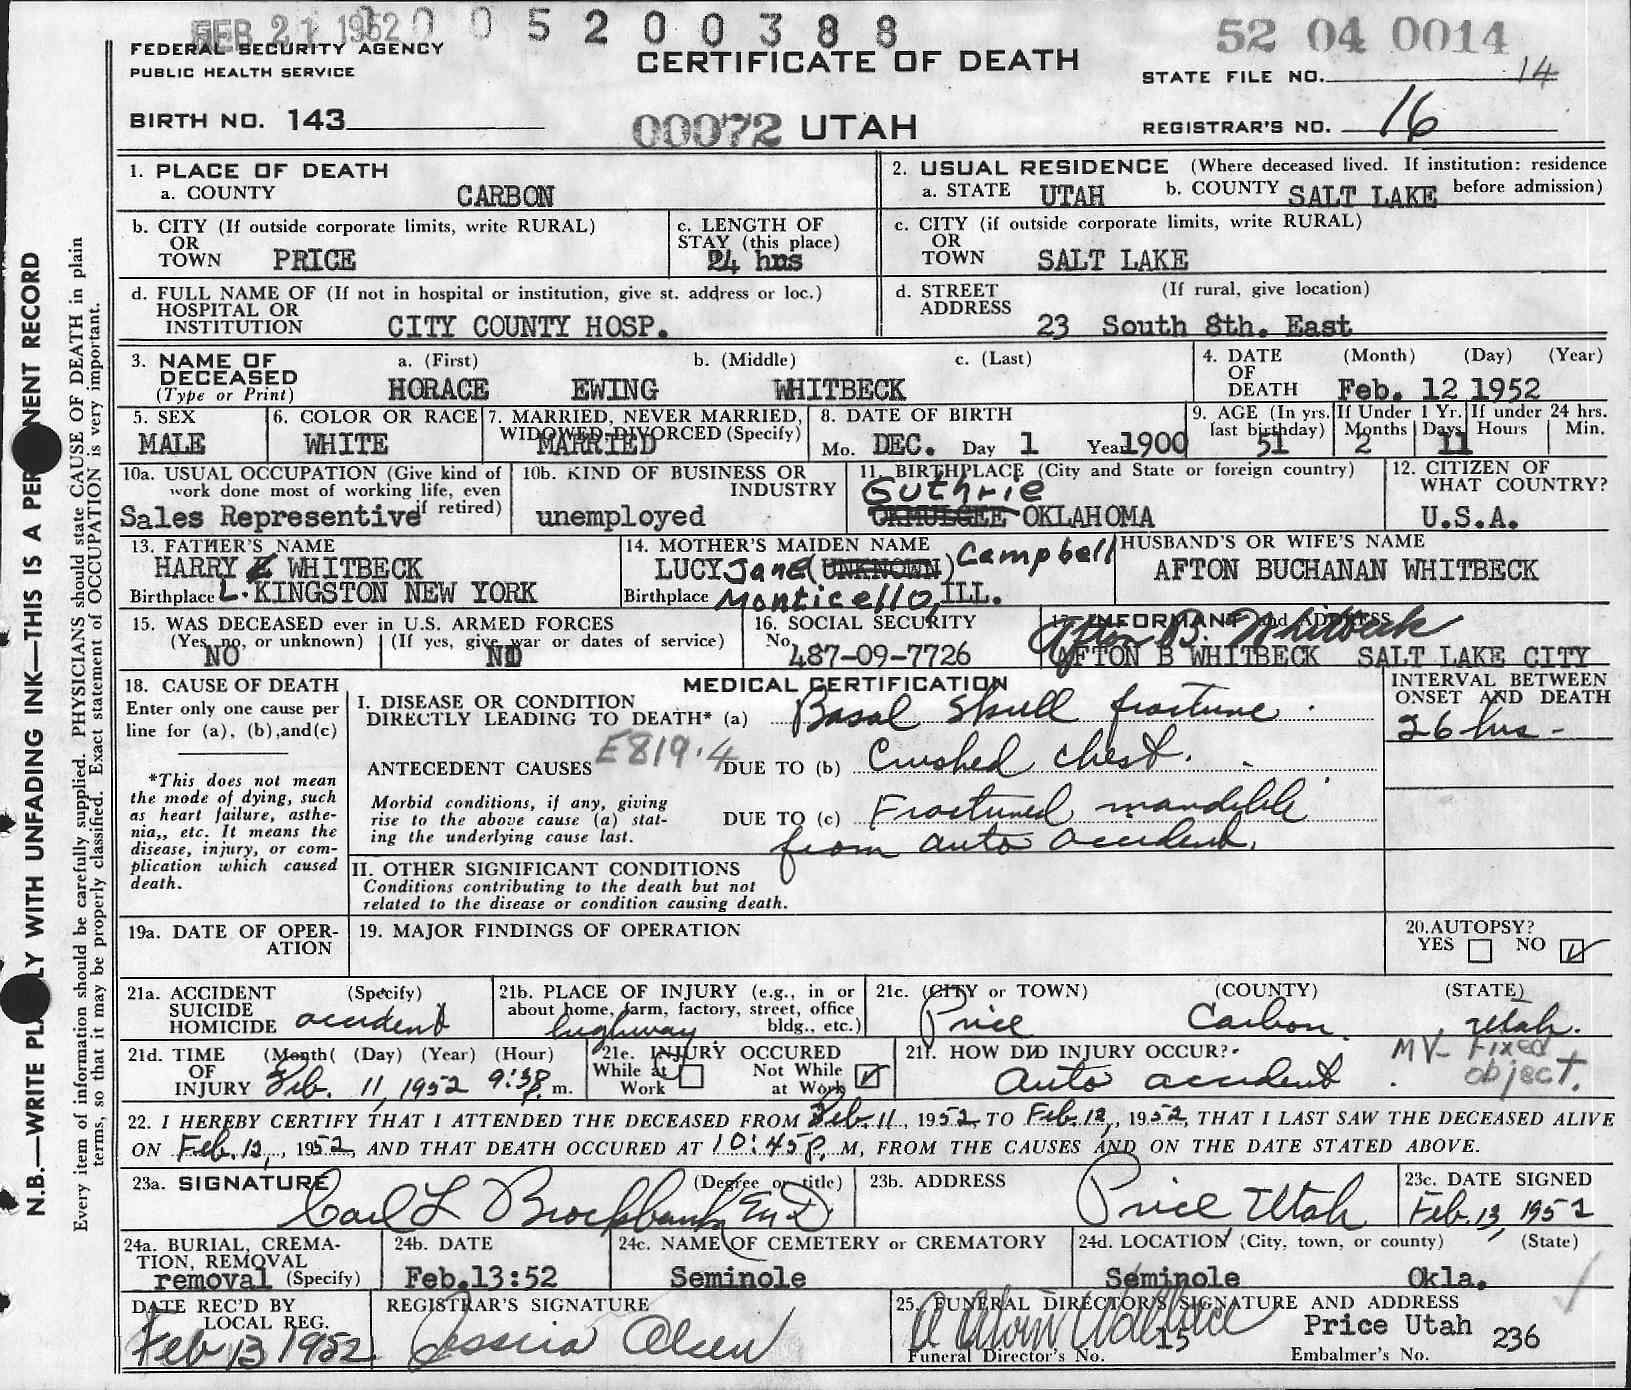 FEB 21 1952 0 0 5 2 0 0 3 8 8
52 04 0014
FEDERAL SECURITY AGENCY
PUBLIC HEALTH SERVICE
CERTIFICATE OF DEATH
STATE FILE NO. 14
BIRTH NO. 143
00072 UTAH
REGISTRAR'S NO. 16
N.B.—WRITE PLAINLY WITH UNFADING INK—THIS IS A PERMANENT RECORD
Every item of information should be carefully supplied. PHYSICIANS should state CAUSE OF DEATH in plain
terms, so that it may be properly classified. Exact statement of OCCUPATION is very important.
1. PLACE OF DEATH
a. COUNTY CARBON
2. USUAL RESIDENCE (Where deceased lived. If institution: residence
a. STATE UTAH b. COUNTY SALT LAKE before admission)
b. CITY (If outside corporate limits, write RURAL)
OR
TOWN PRICE
c. LENGTH OF
STAY (this place)
24 hrs
c. CITY (if outside corporate limits, write RURAL)
OR
TOWN SALT LAKE
d. FULL NAME OF (If not in hospital or institution, give st. address or loc.)
HOSPITAL OR
INSTITUTION CITY COUNTY HOSP.
d. STREET (If rural, give location)
ADDRESS
23 South 8th. East
3. NAME OF DECEASED (Type or Print)
a. (First) b. (Middle) c. (Last)
HORACE EWING WHITBECK
4. DATE OF DEATH (Month) (Day) (Year)
Feb. 12 1952
5. SEX
MALE
6. COLOR OR RACE
WHITE
7. MARRIED, NEVER MARRIED,
WIDOWED, DIVORCED (Specify)
MARRIED
8. DATE OF BIRTH
Mo. DEC. Day 1 Year 1900
9. AGE (In yrs. last birthday)
51
If Under 1 Yr.
Months Days
2 11
If under 24 hrs.
Hours Min.
10a. USUAL OCCUPATION (Give kind of
work done most of working life, even
if retired)
Sales Representive
10b. KIND OF BUSINESS OR
INDUSTRY
unemployed
11. BIRTHPLACE (City and State or foreign country)
Guthrie
OKMULGEE OKLAHOMA
12. CITIZEN OF
WHAT COUNTRY?
U.S.A.
13. FATHER'S NAME
HARRY E WHITBECK
Birthplace L. KINGSTON NEW YORK
14. MOTHER'S MAIDEN NAME
LUCY Jane (UNKNOWN) Campbell
Birthplace Monticello, ILL.
HUSBAND'S OR WIFE'S NAME
AFTON BUCHANAN WHITBECK
15. WAS DECEASED ever in U.S. ARMED FORCES
(Yes, no, or unknown) (If yes, give war or dates of service)
NO NO
16. SOCIAL SECURITY
No. 487-09-7726
17. INFORMANT and ADDRESS
Afton B. Whitbeck
AFTON B WHITBECK SALT LAKE CITY
18. CAUSE OF DEATH
Enter only one cause per
line for (a), (b), and (c)
*This does not mean
the mode of dying, such
as heart failure, asthe-
nia,, etc. It means the
disease, injury, or com-
plication which caused
death.
MEDICAL CERTIFICATION
I. DISEASE OR CONDITION
DIRECTLY LEADING TO DEATH* (a) Basal Skull fracture.
ANTECEDENT CAUSES E819.4 DUE TO (b) Crushed chest.
Morbid conditions, if any, giving
rise to the above cause (a) stat-
ing the underlying cause last.
DUE TO (c) Fractured mandible
from auto accident.
INTERVAL BETWEEN
ONSET AND DEATH
26 hrs -
II. OTHER SIGNIFICANT CONDITIONS
Conditions contributing to the death but not
related to the disease or condition causing death.
19a. DATE OF OPER-
ATION
19. MAJOR FINDINGS OF OPERATION
20. AUTOPSY?
YES NO
21a. ACCIDENT (Specify)
SUICIDE
HOMICIDE accident
21b. PLACE OF INJURY (e.g., in or
about home, farm, factory, street, office
bldg., etc.)
highway
21c. (CITY or TOWN) (COUNTY) (STATE)
Price Carbon, Utah.
21d. TIME (Month( (Day) (Year) (Hour)
OF
INJURY Feb. 11, 1952 9:38 P. m.
21e. INJURY OCCURED
While at Work Not While at Work
21f. HOW DID INJURY OCCUR?
auto accident
MV- Fixed
object.
22. I HEREBY CERTIFY THAT I ATTENDED THE DECEASED FROM Feb. 11, 1952, TO Feb. 12, 1952, THAT I LAST SAW THE DECEASED ALIVE
ON Feb. 12, 1952, AND THAT DEATH OCCURED AT 10:45 P. M, FROM THE CAUSES AND ON THE DATE STATED ABOVE.
23a. SIGNATURE (Degree or title)
Carl L Brockbank, M.D.
23b. ADDRESS
Price Utah
23c. DATE SIGNED
Feb. 13, 1952
24a. BURIAL, CREMA-
TION, REMOVAL
removal (Specify)
24b. DATE
Feb.13:52
24c. NAME OF CEMETERY or CREMATORY
Seminole
24d. LOCATION (City, town, or county) (State)
Seminole Okla.
DATE REC'D BY
LOCAL REG.
Feb 13 1952
REGISTRAR'S SIGNATURE
Jessica Olsen
25. FUNERAL DIRECTOR'S SIGNATURE AND ADDRESS
Wallace
15 Price Utah 236
Funeral Director's No. Embalmer's No.